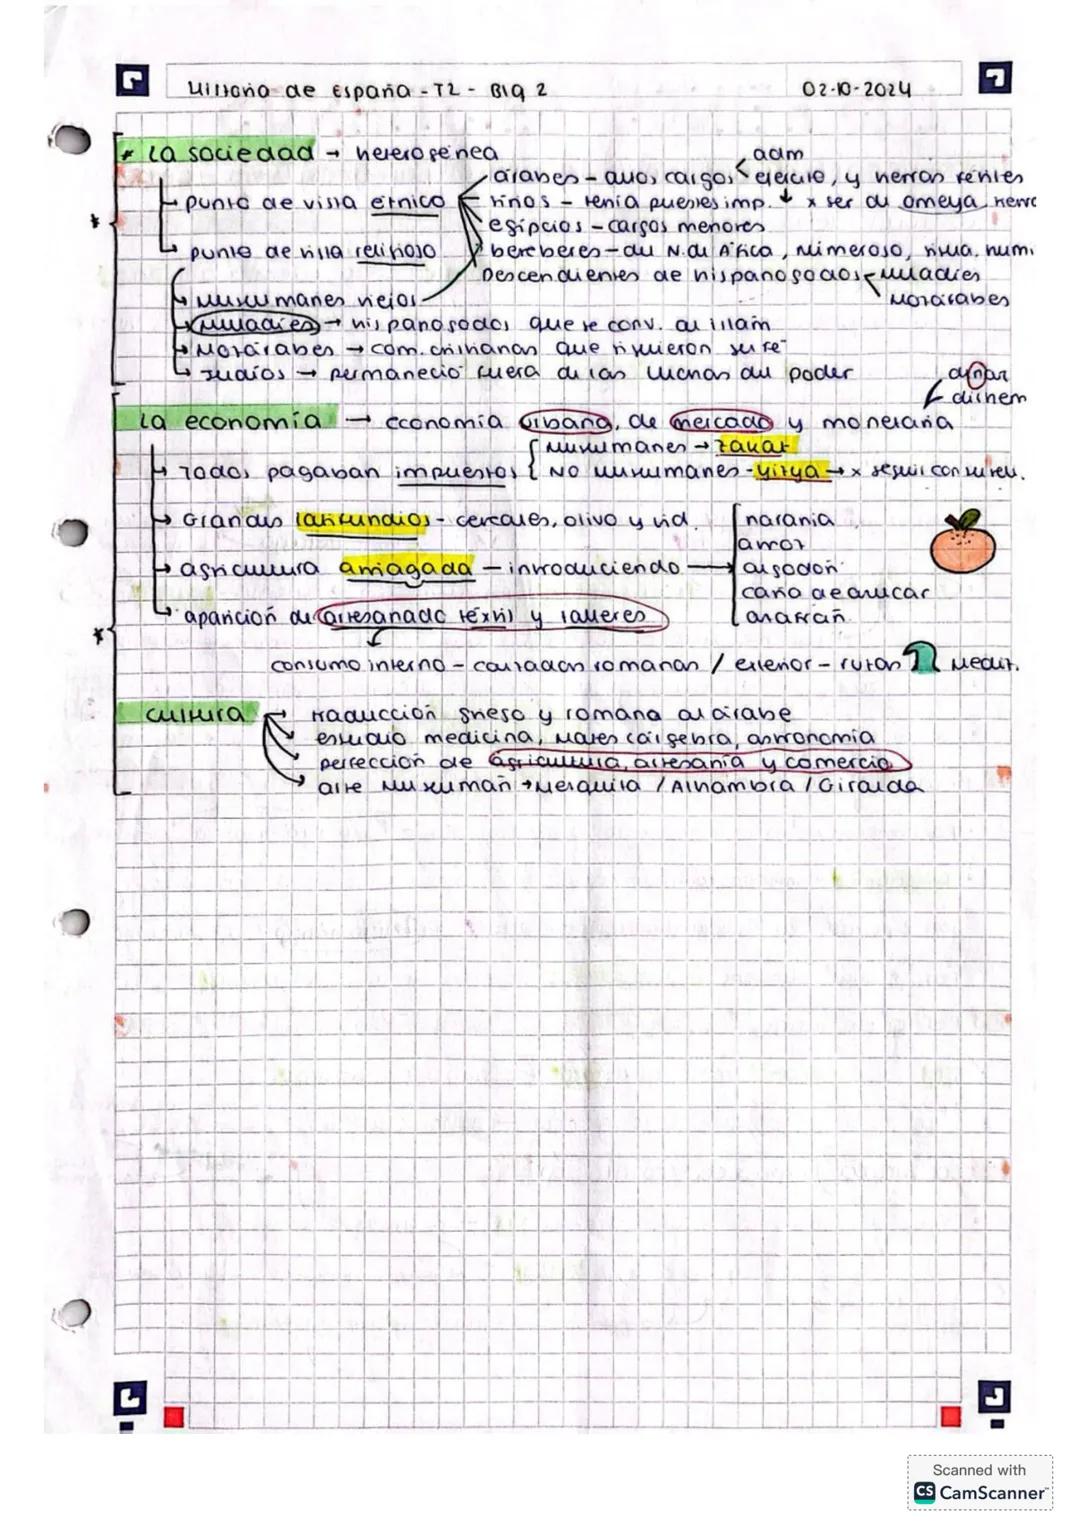 Historia de España - T2 - Blq 2
02-10-2024
* La sociedad → heterogénea
adm
árabes - altos cargos ejército, y tierras fértiles
punto de vista étnico
sirios - tenía puestos imp. ↓ x ser del omeya
egipcios - cargos menores
punto de vista religioso
bereberes - del N. de África, numeroso,
Descendientes de hispanogodos muladíes
Mozárabes
Musulmanes viejos
Muladíes → hispanogodos que se conv. al islam
Mozárabes → com. cristianas que siguieron su fe
Judíos → permaneció fuera de las luchas del poder
dinar
dirhem
La economía → economía urbana, de mercado y monetaria
Musulmanes → zakat
Todos pagaban impuestos
No musulmanes - yizya → x seguir con su rel.
Grandes latifundios - cereales, olivo y vid.
naranja
arroz
agricultura arriagada - introduciendo → algodón
caña de azúcar
azafrán
aparición de artesanado téxtil y talleres
consumo interno - calzadas romanas / exterior - rutas Medit.
cultura → traducción griego y romana al árabe
estudio medicina, mates (álgebra, astronomía
perfección de agricultura, artesanía y comercio
arte Musulmán → Mezquita / Alhambra / Giralda
Scanned with
CS CamScanner